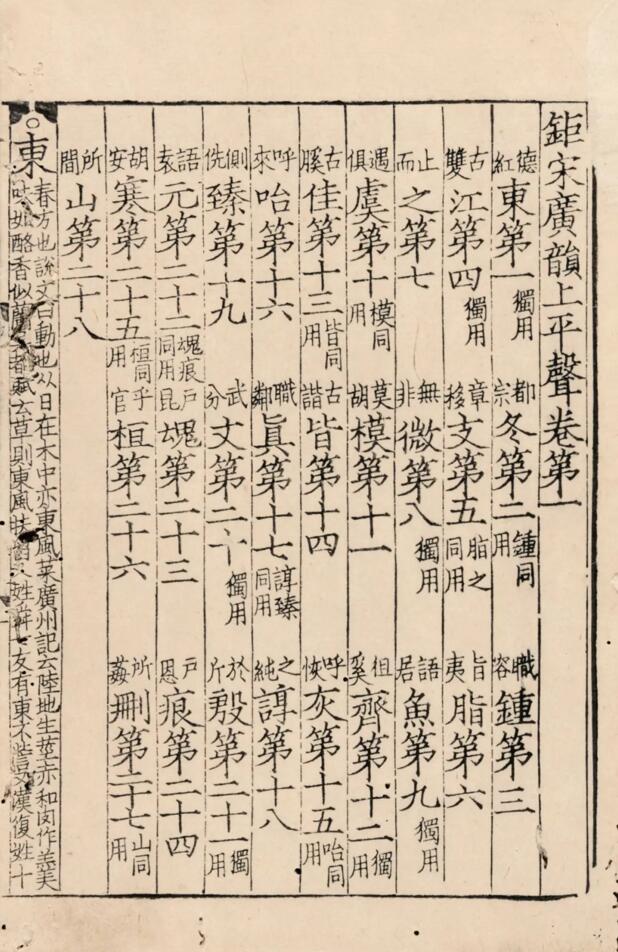 鉅宋廣韻上平聲卷第一
德紅東第一獨用 都宗冬第二鍾同用 職容鍾第三
古雙江第四獨用 章移支第五脂之同用 旨夷脂第六
止而之第七 無非微第八獨用 語居魚第九獨用
遇俱虞第十模同用 莫胡模第十一 徂奚齊第十二獨用
古膎佳第十三皆同用 古諧皆第十四 呼恢灰第十五咍同用
呼來咍第十六 職鄰眞第十七諄臻同用 之純諄第十八
側侁臻第十九 武分文第二十獨用 於斤殷第二十一獨用
語袁元第二十二魂痕同用 戶昆魂第二十三 戶恩痕第二十四
胡安寒第二十五桓同用 乎官桓第二十六 所姦刪第二十七山同用
所間山第二十八
○東
春方也說文曰動也从日在木中亦東風菜廣州記云陸地生莖赤和肉作羹美
味如酪香似蘭都賦云草則東風扶又姓舜七友有東不訾又漢復姓十